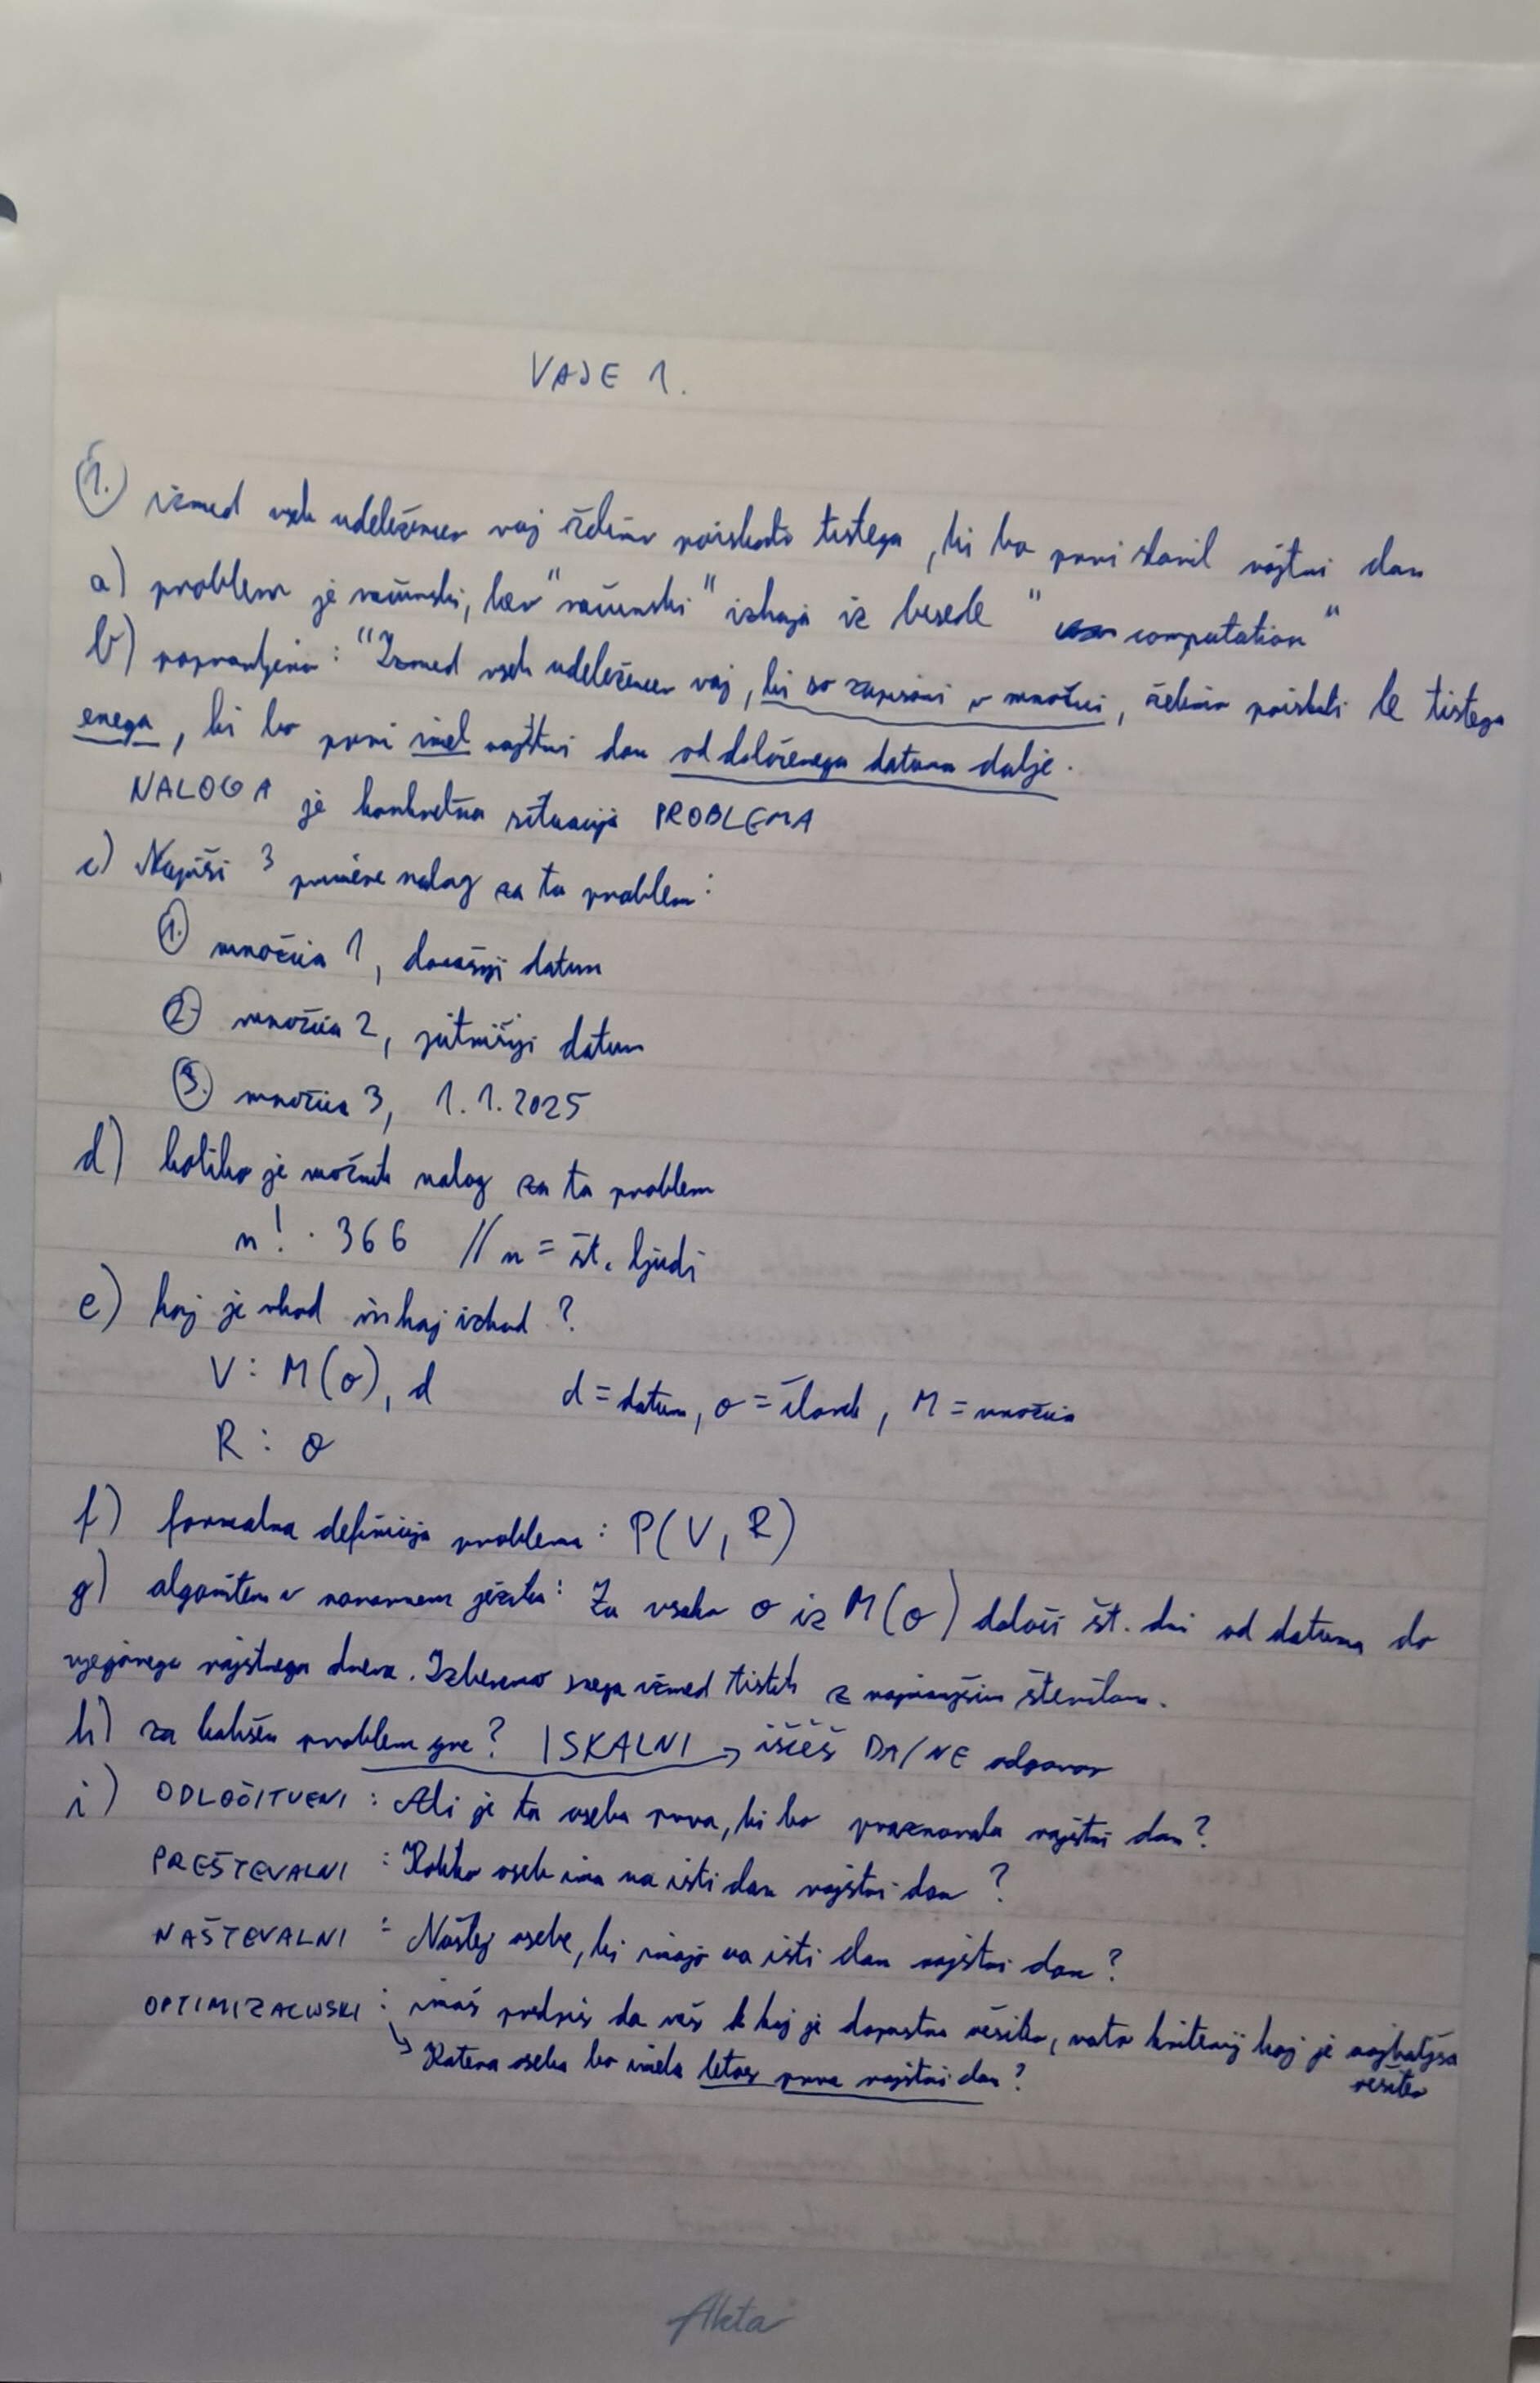 VAJE 1.
1. izmed vseh udeležencev vaj želimo poiskati tistega, ki bo prvi slavil rojstni dan
a) problem je računski, ker "računski" izhaja iz besede "computation"
b) popravljeno: "Izmed vseh udeležencev vaj, ki so zapisani v množici, želimo poiskati le tistega
enega, ki bo prvi imel rojstni dan od določenega datuma dalje.
NALOGA je konkretna situacija PROBLEMA
c) Napiši 3 primere nalog za ta problem:
1. množica 1, današnji datum
2. množica 2, jutrišnji datum
3. množica 3, 1.1.2025
d) koliko je možnih nalog za ta problem
n! · 366 // n = št. ljudi
e) kaj je vhod in kaj izhod?
V: M(o), d d = datum, o = človek, M = množica
R: o
f) formalna definicija problema: P(V, R)
g) algoritem v naravnem jeziku: Za vsako o iz M(o) določi št. dni od datuma do
njegovega rojstnega dneva. Izberemo enega izmed tistih z najmanjšim številom.
h) za kakšen problem gre? ISKALNI → iščeš DA/NE odgovor
i) ODLOČITVENI: Ali je ta oseba prva, ki bo praznovala rojstni dan?
PREŠTEVALNI: Koliko oseb ima na isti dan rojstni dan?
NAŠTEVALNI: Naštej osebe, ki imajo na isti dan rojstni dan?
OPTIMIZACIJSKI: imaš predpis da veš kaj je dopustna rešitev, nato kriterij kaj je najboljša
rešitev
↳ Katera oseba bo imela letos prva rojstni dan?
Akta